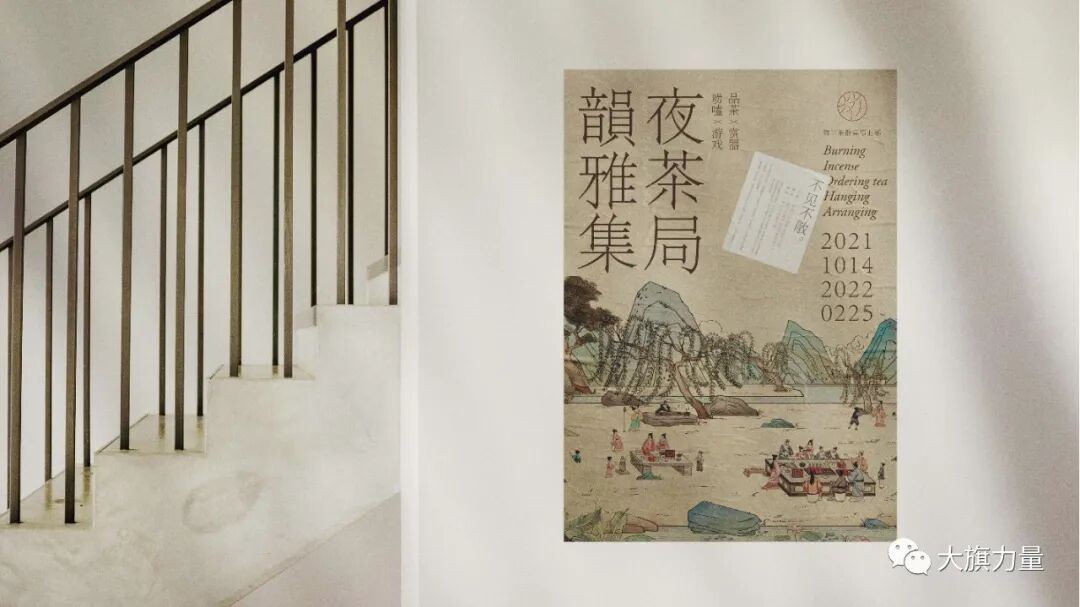 夜茶局
韻雅集
品茶×赏器
唠嗑×游戏
Burning
Incense
Ordering tea
Hanging
Arranging
不见不散。
2021
1014
2022
0225
大旗力量